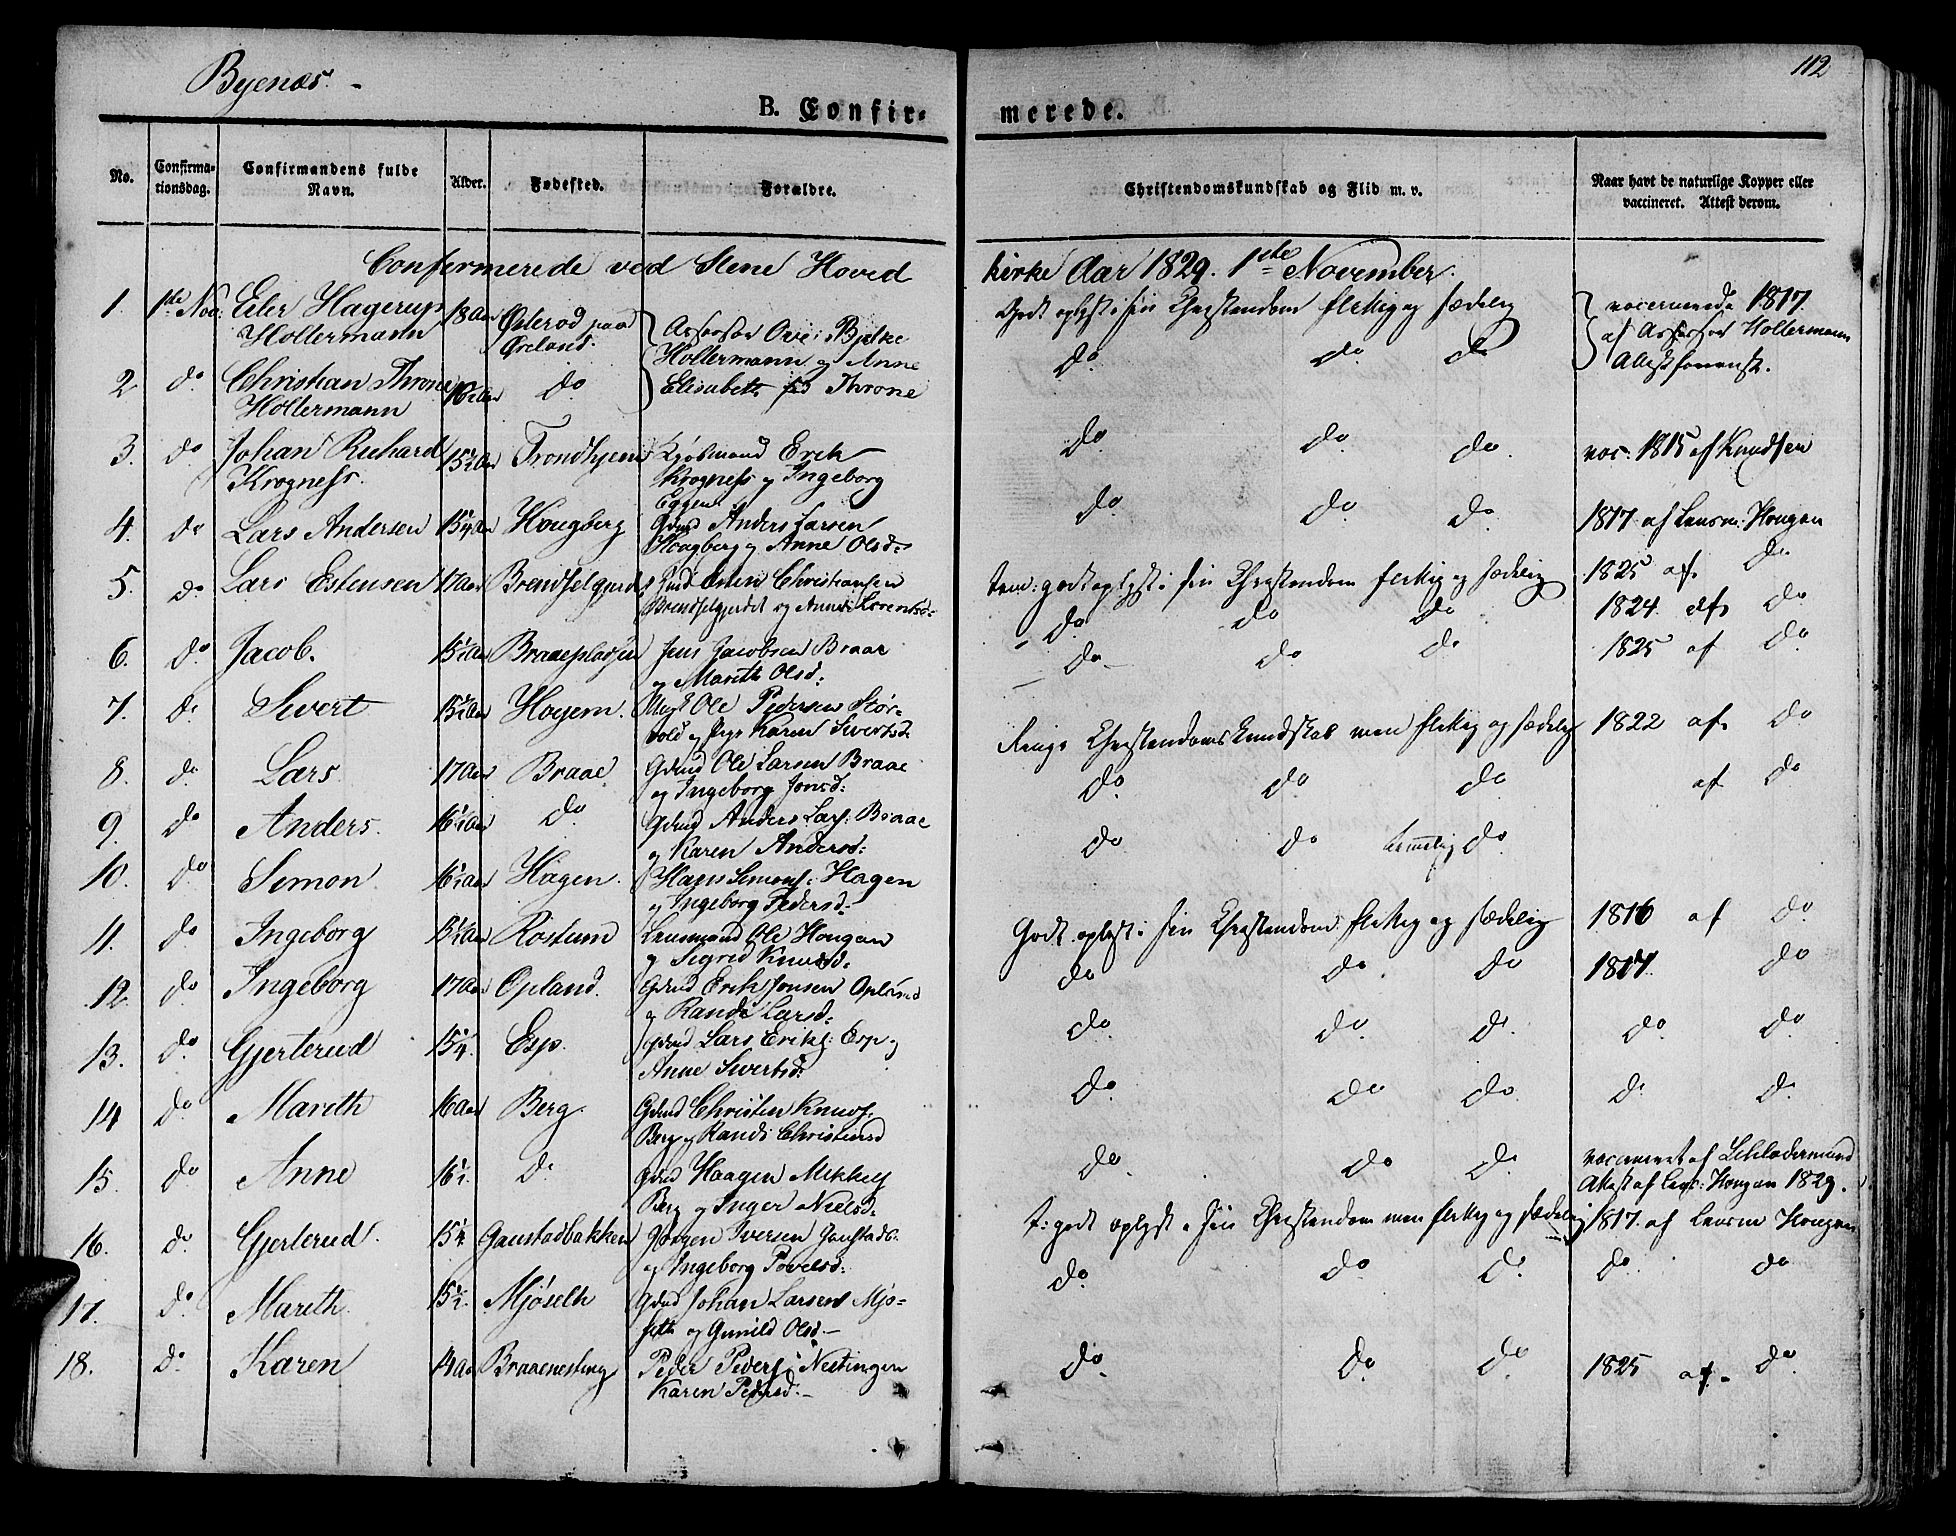 Byenæs.
112
B. Confirmerede.
No.
Confirmationsdag.
Confirmandens fulde Navn.
Alder.
Fødested.
Forældre.
Christendomskundskab og Flid m. v.
Naar havt de naturlige Kopper eller vaccineret. Attest derom.
Confirmerede ved Stene Hoved kirke Aar 1829. 1ste November.
1. 1ste Nov. Eiler Hagerup Holtermann 18 Aar Østeraad paa Øreland. Assessor Ove Bjelke Holtermann og Anne Elisabeth fød Throne Godt oplyst i sin Christendom flittig og sædelig vaccinerede 1817. af Assessor Holtermann Attest foreviist.
2. do Christian Throne Holtermann 16 Aar do do do do
3. do Johan Richard Krogness. 15½ Aar Trondhjem Kjøbmand Erik Krogness og Ingeborg Eggen do do do vac. 1815 af Knudsen
4. do Lars Andersen 15¼ Aar Hougberg Gmd Anders Larsen Hougberg og Anne Olsd: do do do 1817 af Lensm: Hougan
5. do Lars Estensen 17 Aar Christiansen og Lorentsd: godt oplyst i sin Christendom flittig og sædelig 1825 af do
do do do 1824. af do
6. do Jacob. 15½ Aar Braaepladsen Jens Jacobsen Braae og Marith Olsd: do do do 1825 af do
7. do Sivert 15½ Aar Høyem. Ole Pedersen og Karen Sivertsd. Ringe Christendomskundskab men flittig og sædelig 1822 af do
8. do Lars 17 Aar Braae Gdmd Ole Larsen Braae og Ingeborg Jonsd: do do do af do
9. do Anders. 16½ Aar do Gdmd Anders Lars: Braae og Karen Andersd: do do do
10. do Simon 16½ Aar Hagen. Hans Simons: Hagen og Ingeborg Pedersd:
11. do Ingeborg 15½ Aar Rostum Lensmand Ole Hougan og Sigrid Knudsd: Godt oplyst i sin Christendom flittig og sædelig 1816 af do
12. do Ingeborg 17 Aar Opland. Gdmd Erik Jonsen Opland og Randi Larsd: do do do 1817. do
13. do Gjerterud 15¼ Esp. Gdmd Lars Eriks: Esp og Anne Sivertsd: do do do do do
14 do Marith 16 Aar Berg. Gdmd Christen Knuds: Berg og Randi Christensd do do do do do
15. do Anne 16½ do Gdmd Haagen Mikkels Berg og Inger Nielsd: do do do vaccineret af Attest af Lens: Hougan 1829.
16. do Gjerterud. 15¼ Gaustadbakken Jørgen Iversen Gaustadb. og Ingeborg Povelsd: t: godt oplyst i sin Christendom men flittig og sædelig 1817. af Lensm Hougan
17. do Marith. 15½ Mjøseth Gdmd Johan Larsen Mjøseth og Gunild Olsd:- do do do do do
18. do Karen 14 Aar Braaenesting Peder Peders: Nestingen Karen Pedersd:- do do do 1825 af do